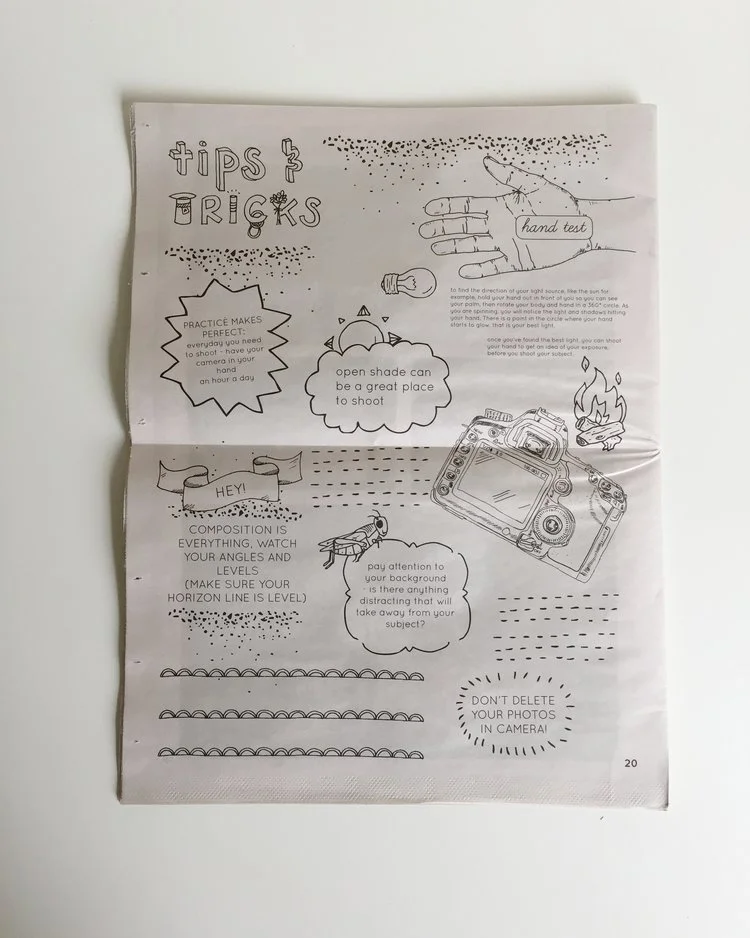 tips &
TRICKS
hand test
to find the direction of your light source, like the sun for
example, hold your hand out in front of you so you can see
your palm, then rotate your body and hand in a 360° circle. As
you are spinning, you will notice the light and shadows hitting
your hand. There is a point in the circle where your hand
starts to glow, that is your best light.
once you've found the best light, you can shoot
your hand to get an idea of your exposure,
before you shoot your subject.
PRACTICE MAKES
PERFECT:
everyday you need
to shoot - have your
camera in your
hand
an hour a day
open shade can
be a great place
to shoot
HEY!
COMPOSITION IS
EVERYTHING, WATCH
YOUR ANGLES AND
LEVELS
(MAKE SURE YOUR
HORIZON LINE IS LEVEL)
pay attention to
your background
- is there anything
distracting that will
take away from your
subject?
DON'T DELETE
YOUR PHOTOS
IN CAMERA!
20